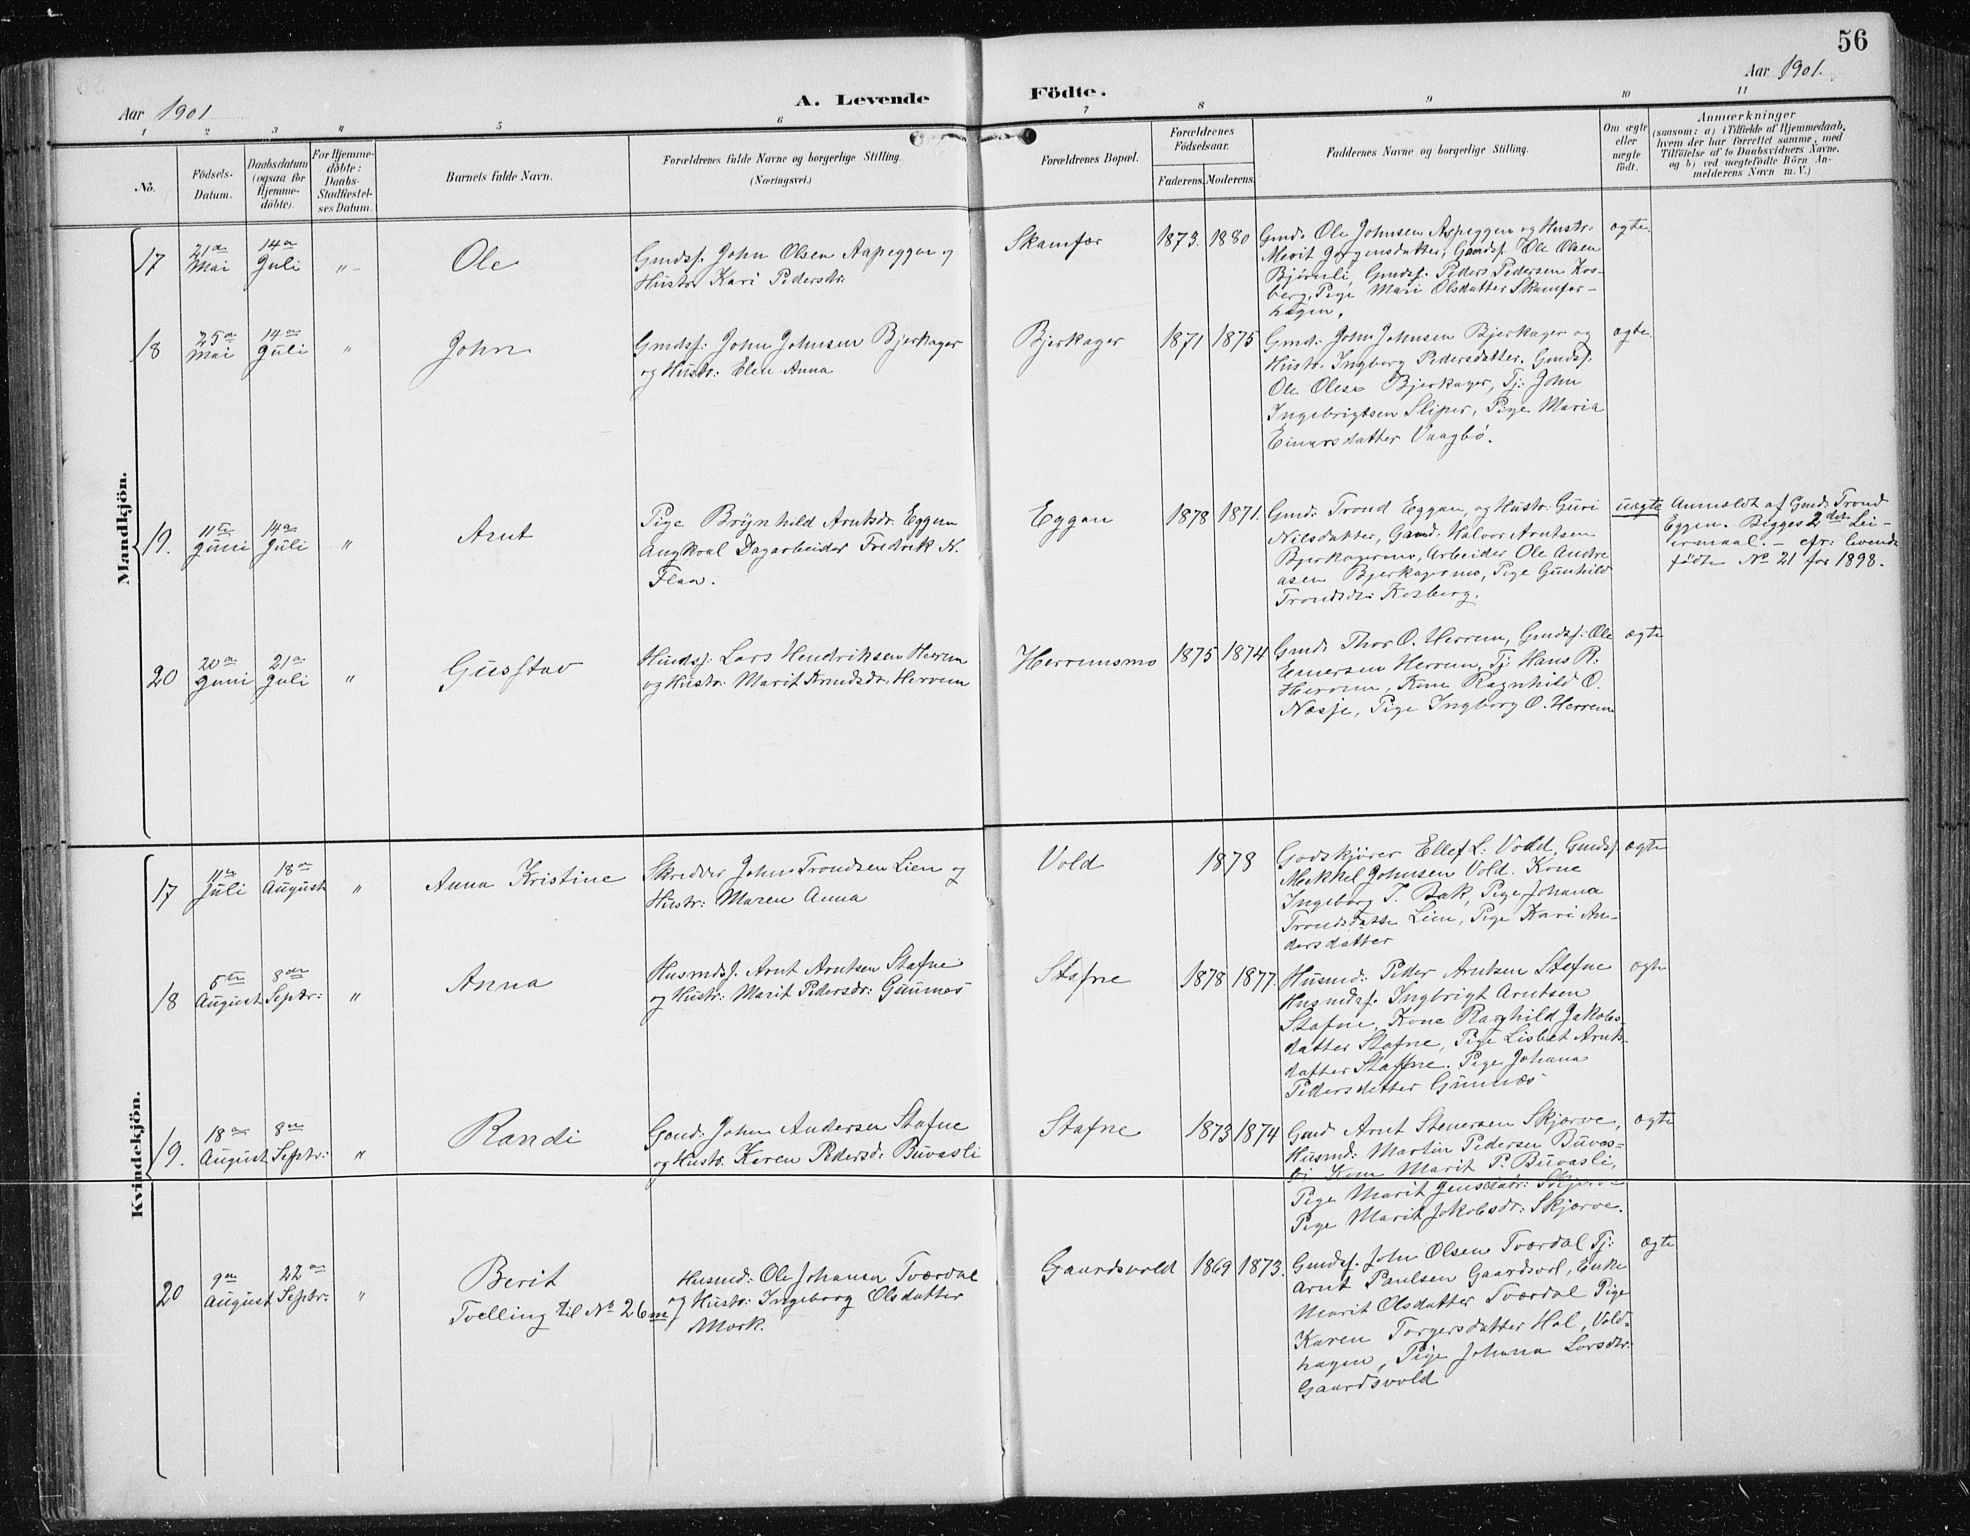 56
Aar 1901
A. Levende Födte.
Aar 1901.
1 2 3 4 5 6 7 8 9 10 11
No.
Födsels-Datum.
Daabsdatum (ogsaa for Hjemme-döbte).
For Hjemme-döbte: Daabs-Stadfæstel-ses Datum.
Barnets fulde Navn.
Forældrenes fulde Navne og borgerlige Stilling.
(Næringsvei.)
Forældrenes Bopæl.
Forældrenes Födselsaar.
Faderens. Moderens.
Faddernes Navne og borgerlige Stilling.
Om ægte eller uægte födt.
Anmærkninger
(saasom: a) i Tilfælde af Hjemmedaab,
hvem der har forrettet samme, med
Tilföielse af to Daabsvidners Navne,
og b) ved uægtefödte Börn An-
melderens Navn m. V.)
Mandkjön.
17
21de Mai
14de Juli
"
Ole
Gmdsf. John Olsen Aspeggen og
Hustr. Kari Pedersdr.
Skamfær
1873. 1880
Gmd. Ole Johnsen Aspeggen og Hustr:
Merit Jørgensdatter, Gmdsf. Ole Olsen
Bjørnli, Gmdsf. Peder Pedersen Kos-
berg, Pige Mari Olsdatter Skamfær-
hagen.
ægte
18
25de Mai
14de Juli
"
John
Gmdsf: John Johnsen Bjerkager
og Hustr: Elen Anna
Bjerkager
1871 1875
Gmd: John Johnsen Bjerkager og
Hustr. Ingeborg Pedersdatter. Gmdsf:
Ole Olsen Bjerkager, Tj: John
Ingebrigtsen Sliper, Pige Maria
Einarsdatter Vaagbø.
ægte
19.
11te Juni
14de Juli
"
Arnt
Pige Brynhild Arntsdr. Eggen
Angkval Dagarbeider Fredrik N.
Flaa.
Eggan
1878 1871.
Gmd: Trond Eggan, og Hustr: Guri
Nilsdatter, Gmd. Halvor Arntsen
Bjerkagermo, Arbeider Ole Andre
asen Bjerkagermo, Pige Gunhild
Trondsdr: Kosberg.
uægte
Anmeldt af Gmd: Trond
Eggen. Bigges 2det Lei-
ermaal. - cfr: levende
födte No 21 for 1898.
20
20de Juni
21de Juli
"
Gusstav
Husdsf: Lars Hendriksen Herrem
og Hustr: Marit Arndsdr. Herrem
Herremsmo
1875 1874
Gmd: Thor O. Herrem, Gmdsf: Ole
Herrem, Tj: Hans R.
Herrem, Kone Ragnhild O.
Næsje, Pige Ingborg O. Herrem
ægte
Kvindekjön.
17
11te Juli
18de August
"
Anna Kristine
Skredder John Trondsen Lien og
Hustr: Maren Anna
Vold
1878
Godskjører Ellef L: Vold, Gmdsf.
Mekkel Johnsen Vold. Kone
Ingeborg T. Bak, Pige Johana
Trondsdatter Lien, Pige Kari An-
dersdatter
ægte
18
5te August
8de Septr:
"
Anna
Husmdsf. Arnt Arntsen Stafne
og Hustr: Marit Pedersdr: Gunnes
Stafne
1878 1877.
Husmd: Peder Arntsen Stafne
Husmdsf. Ingbrigt Arntsen
Stafne, Kone Ragnhild Jakobs-
datter Stafne, Pige Lisbet Arnts-
datter Stafne. Pige Johana
Pedersdatter Gunnæs
ægte
19.
18de August
8de Septr:
"
Randi
Gmd: John Andersen Stafne
og Hustr. Karen Pedersdr Buvasli
Stafne
1873 1874
Gmd Arnt Stenersen Skjærve,
Husmd: Martin Pedersen Buvas-
li Kone Marit P. Buvasli,
Pige Marit Jensdatr: Skjærve
Pige Marit Jakobsdr: Skjærve.
ægte
20
9de August
22de Septr:
"
Berit
Tvelling til No 26 m
Husmd: Ole Johansen Tværdal
og Hustr: Ingeborg Olsdatter
Mork.
Gaardsvold
1869 1873.
Gmdsf. John Olsen Tværdal Tj:
Arnt Paulsen Gaardsvol, Enke
Marit Olsdatter Tværdal Pige
Karen Torgersdatter Hol, Vold-
hagen, Pige Johana Larsdtr:
Gaardsvold
ægte